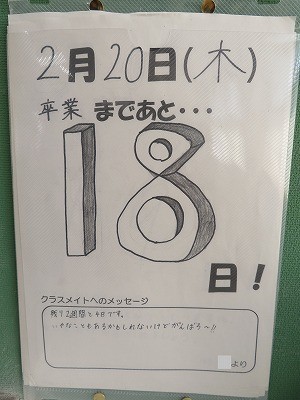 2月20日(木)
卒業 まであと・・・
18
日!
クラスメイトへのメッセージ
残り2週間と4日です。
いやなこともあるかもしれないけどがんばろ〜!!
より